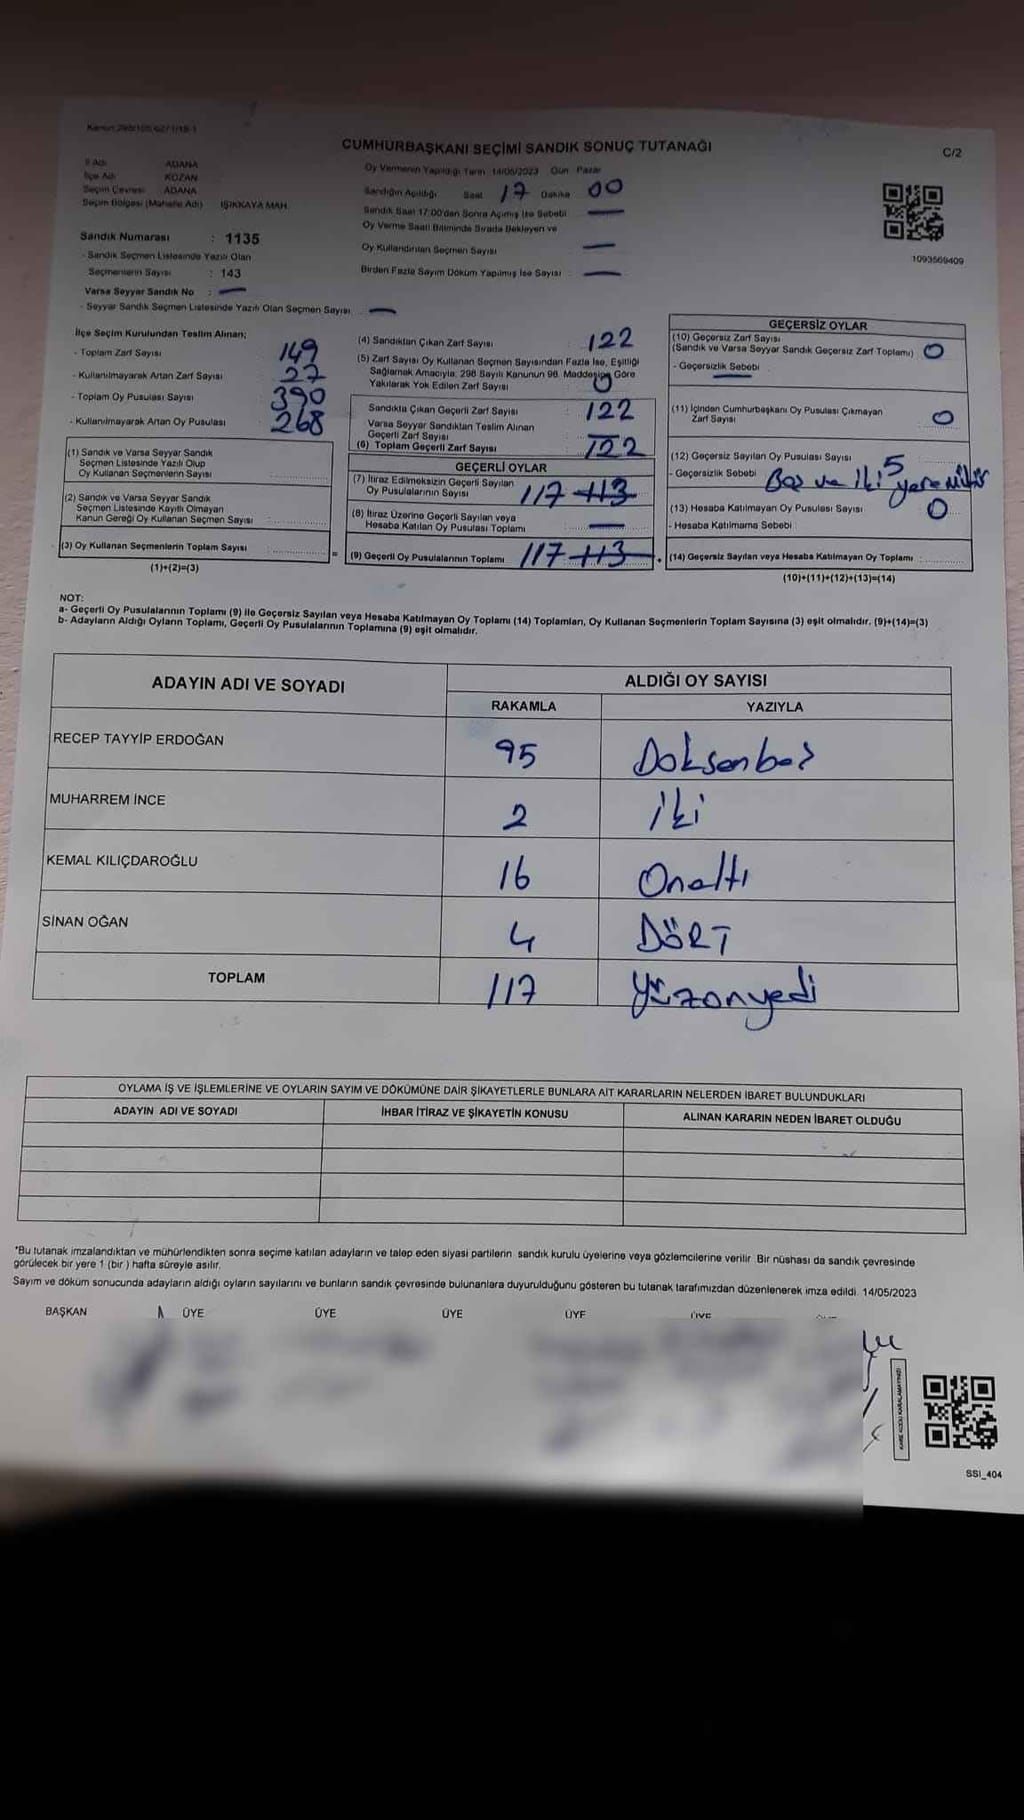 Kanun:298/105,6271/18-1
CUMHURBAŞKANI SEÇİMİ SANDIK SONUÇ TUTANAĞI
C/2
İl Adı ADANA
İlçe Adı KOZAN
Seçim Çevresi ADANA
Seçim Bölgesi (Mahalle Adı) IŞIKKAYA MAH.
Sandık Numarası : 1135
- Sandık Seçmen Listesinde Yazılı Olan
Seçmenlerin Sayısı : 143
Varsa Seyyar Sandık No : —
- Seyyar Sandık Seçmen Listesinde Yazılı Olan Seçmen Sayısı —
Oy Vermenin Yapıldığı Tarih 14/05/2023 Gün Pazar
Sandığın Açıldığı Saat 17 Dakika 00
Sandık Saat 17:00'den Sonra Açımış İse Sebebi —
Oy Verme Saati Bitiminde Sırada Bekleyen ve
Oy Kullandırılan Seçmen Sayısı —
Birden Fazla Sayım Döküm Yapılmış İse Sayısı : —
1093569409
İlçe Seçim Kurulundan Teslim Alınan;
- Toplam Zarf Sayısı 149
- Kullanılmayarak Artan Zarf Sayısı : 27
- Toplam Oy Pusulası Sayısı 390
- Kullanılmayarak Artan Oy Pusulası : 268
(1) Sandık ve Varsa Seyyar Sandık
Seçmen Listesinde Yazılı Olup
Oy Kullanan Seçmenlerin Sayısı
(2) Sandık ve Varsa Seyyar Sandık
Seçmen Listesinde Kayıtlı Olmayan
Kanun Gereği Oy Kullanan Seçmen Sayısı
(3) Oy Kullanan Seçmenlerin Toplam Sayısı =
(1)+(2)=(3)
(4) Sandıktan Çıkan Zarf Sayısı 122
(5) Zarf Sayısı Oy Kullanan Seçmen Sayısından Fazla İse, Eşitliği
Sağlamak Amacıyla, 298 Sayılı Kanunun 98. Maddesine Göre
Yakılarak Yok Edilen Zarf Sayısı 0
Sandıkta Çıkan Geçerli Zarf Sayısı : 122
Varsa Seyyar Sandıktan Teslim Alınan
Geçerli Zarf Sayısı —
(6) Toplam Geçerli Zarf Sayısı 122
GEÇERLİ OYLAR
(7) İtiraz Edilmeksizin Geçerli Sayılan
Oy Pusulalarının Sayısı 117 113
(8) İtiraz Üzerine Geçerli Sayılan veya
Hesaba Katılan Oy Pusulası Toplamı —
(9) Geçerli Oy Pusulalarının Toplamı 117 113 +
GEÇERSİZ OYLAR
(10) Geçersiz Zarf Sayısı
(Sandık ve Varsa Seyyar Sandık Geçersiz Zarf Toplamı) 0
- Geçersizlik Sebebi —
(11) İçinden Cumhurbaşkanı Oy Pusulası Çıkmayan
Zarf Sayısı 0
(12) Geçersiz Sayılan Oy Pusulası Sayısı 5
- Geçersizlik Sebebi Boş ve iki yere Mühür
(13) Hesaba Katılmayan Oy Pusulası Sayısı 0
- Hesaba Katılmama Sebebi
(14) Geçersiz Sayılan veya Hesaba Katılmayan Oy Toplamı :
(10)+(11)+(12)+(13)=(14)
NOT:
a- Geçerli Oy Pusulalarının Toplamı (9) ile Geçersiz Sayılan veya Hesaba Katılmayan Oy Toplamı (14) Toplamları, Oy Kullanan Seçmenlerin Toplam Sayısına (3) eşit olmalıdır. (9)+(14)=(3)
b- Adayların Aldığı Oyların Toplamı, Geçerli Oy Pusulalarının Toplamına (9) eşit olmalıdır.
ADAYIN ADI VE SOYADI ALDIĞI OY SAYISI
RAKAMLA YAZIYLA
RECEP TAYYİP ERDOĞAN 95 Doksanbeş
MUHARREM İNCE 2 İki
KEMAL KILIÇDAROĞLU 16 Onaltı
SİNAN OĞAN 4 DÖRT
TOPLAM 117 Yüzonyedi
OYLAMA İŞ VE İŞLEMLERİNE VE OYLARIN SAYIM VE DÖKÜMÜNE DAİR ŞİKAYETLERLE BUNLARA AİT KARARLARIN NELERDEN İBARET BULUNDUKLARI
ADAYIN ADI VE SOYADI İHBAR İTİRAZ VE ŞİKAYETİN KONUSU ALINAN KARARIN NEDEN İBARET OLDUĞU
*Bu tutanak imzalandıktan ve mühürlendikten sonra seçime katılan adayların ve talep eden siyasi partilerin sandık kurulu üyelerine veya gözlemcilerine verilir. Bir nüshası da sandık çevresinde
görülecek bir yere 1 (bir) hafta süreyle asılır.
Sayım ve döküm sonucunda adayların aldığı oyların sayılarını ve bunların sandık çevresinde bulunanlara duyurulduğunu gösteren bu tutanak tarafımızdan düzenlenerek imza edildi. 14/05/2023
BAŞKAN ÜYE ÜYE ÜYE ÜYE ÜYE
KARE KODU KARALAMAYINIZ!
SSI_404